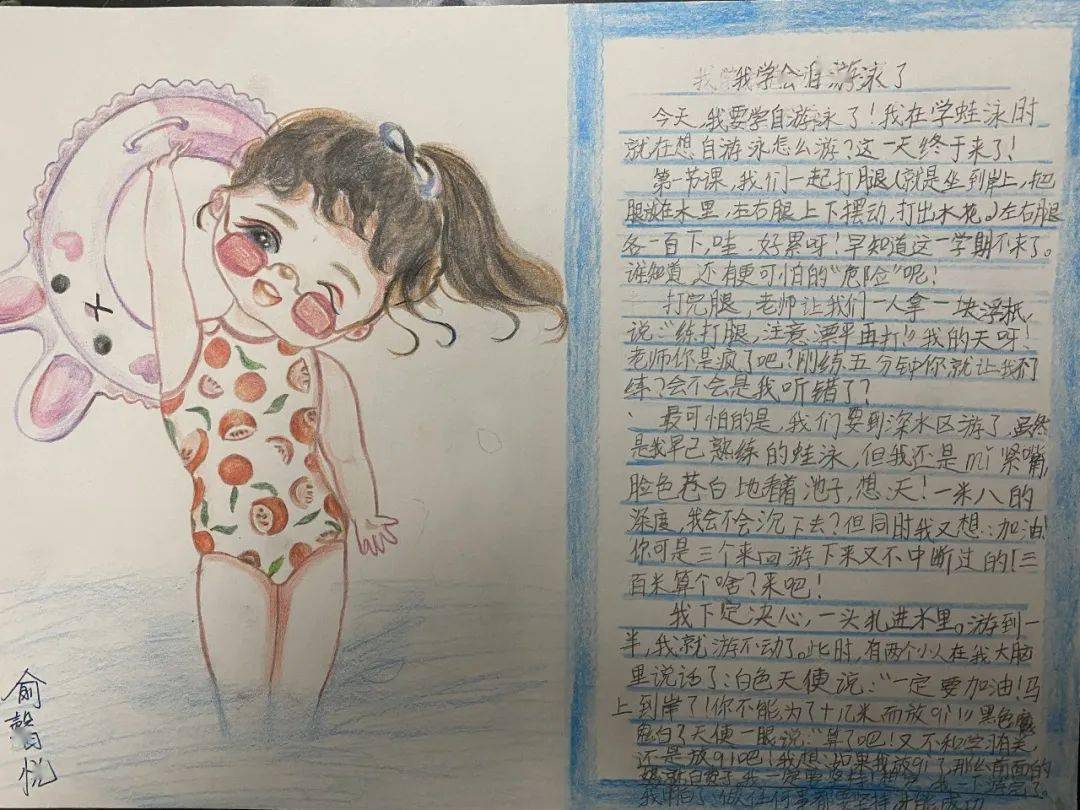 我学会自游泳了
今天,我要学自游泳了!我在学蛙泳时
就在想自游泳怎么游?这一天终于来了!
第一节课,我们一起打腿(就是坐到岸上,把
腿放在水里,左右腿上下摆动,打出水花。)左右腿
各一百下,哇,好累呀!早知道这一学期不来了。
谁知道,还有更可怕的“危险”呢!
打完腿,老师让我们一人拿一块浮板,
说:“练打腿,注意漂平再打!”我的天呀!
老师你是疯了吧?刚练五分钟你就让我们
练?会不会是我听错了?
最可怕的是,我们要到深水区游了,虽然
是我早已熟练的蛙泳,但我还是mǐ紧嘴,
脸色苍白地看着池子,想:天!一米八的
深度,我会不会沉下去?但同时我又想:加油!
你可是三个来回游下来又不中断过的!三
百米算个啥?来吧!
我下定决心,一头扎进水里。游到一
半,我就游不动了。此时,有两个小人在我大脑
里说话了:白色天使说:“一定要加油!马
上到岸了!你不能为了十几米而放qì!”黑色
白了天使一眼说:“算了吧!又不和学习有关,
还是放qì吧!我想:如果我放qì了,那么前面的
俞
悦